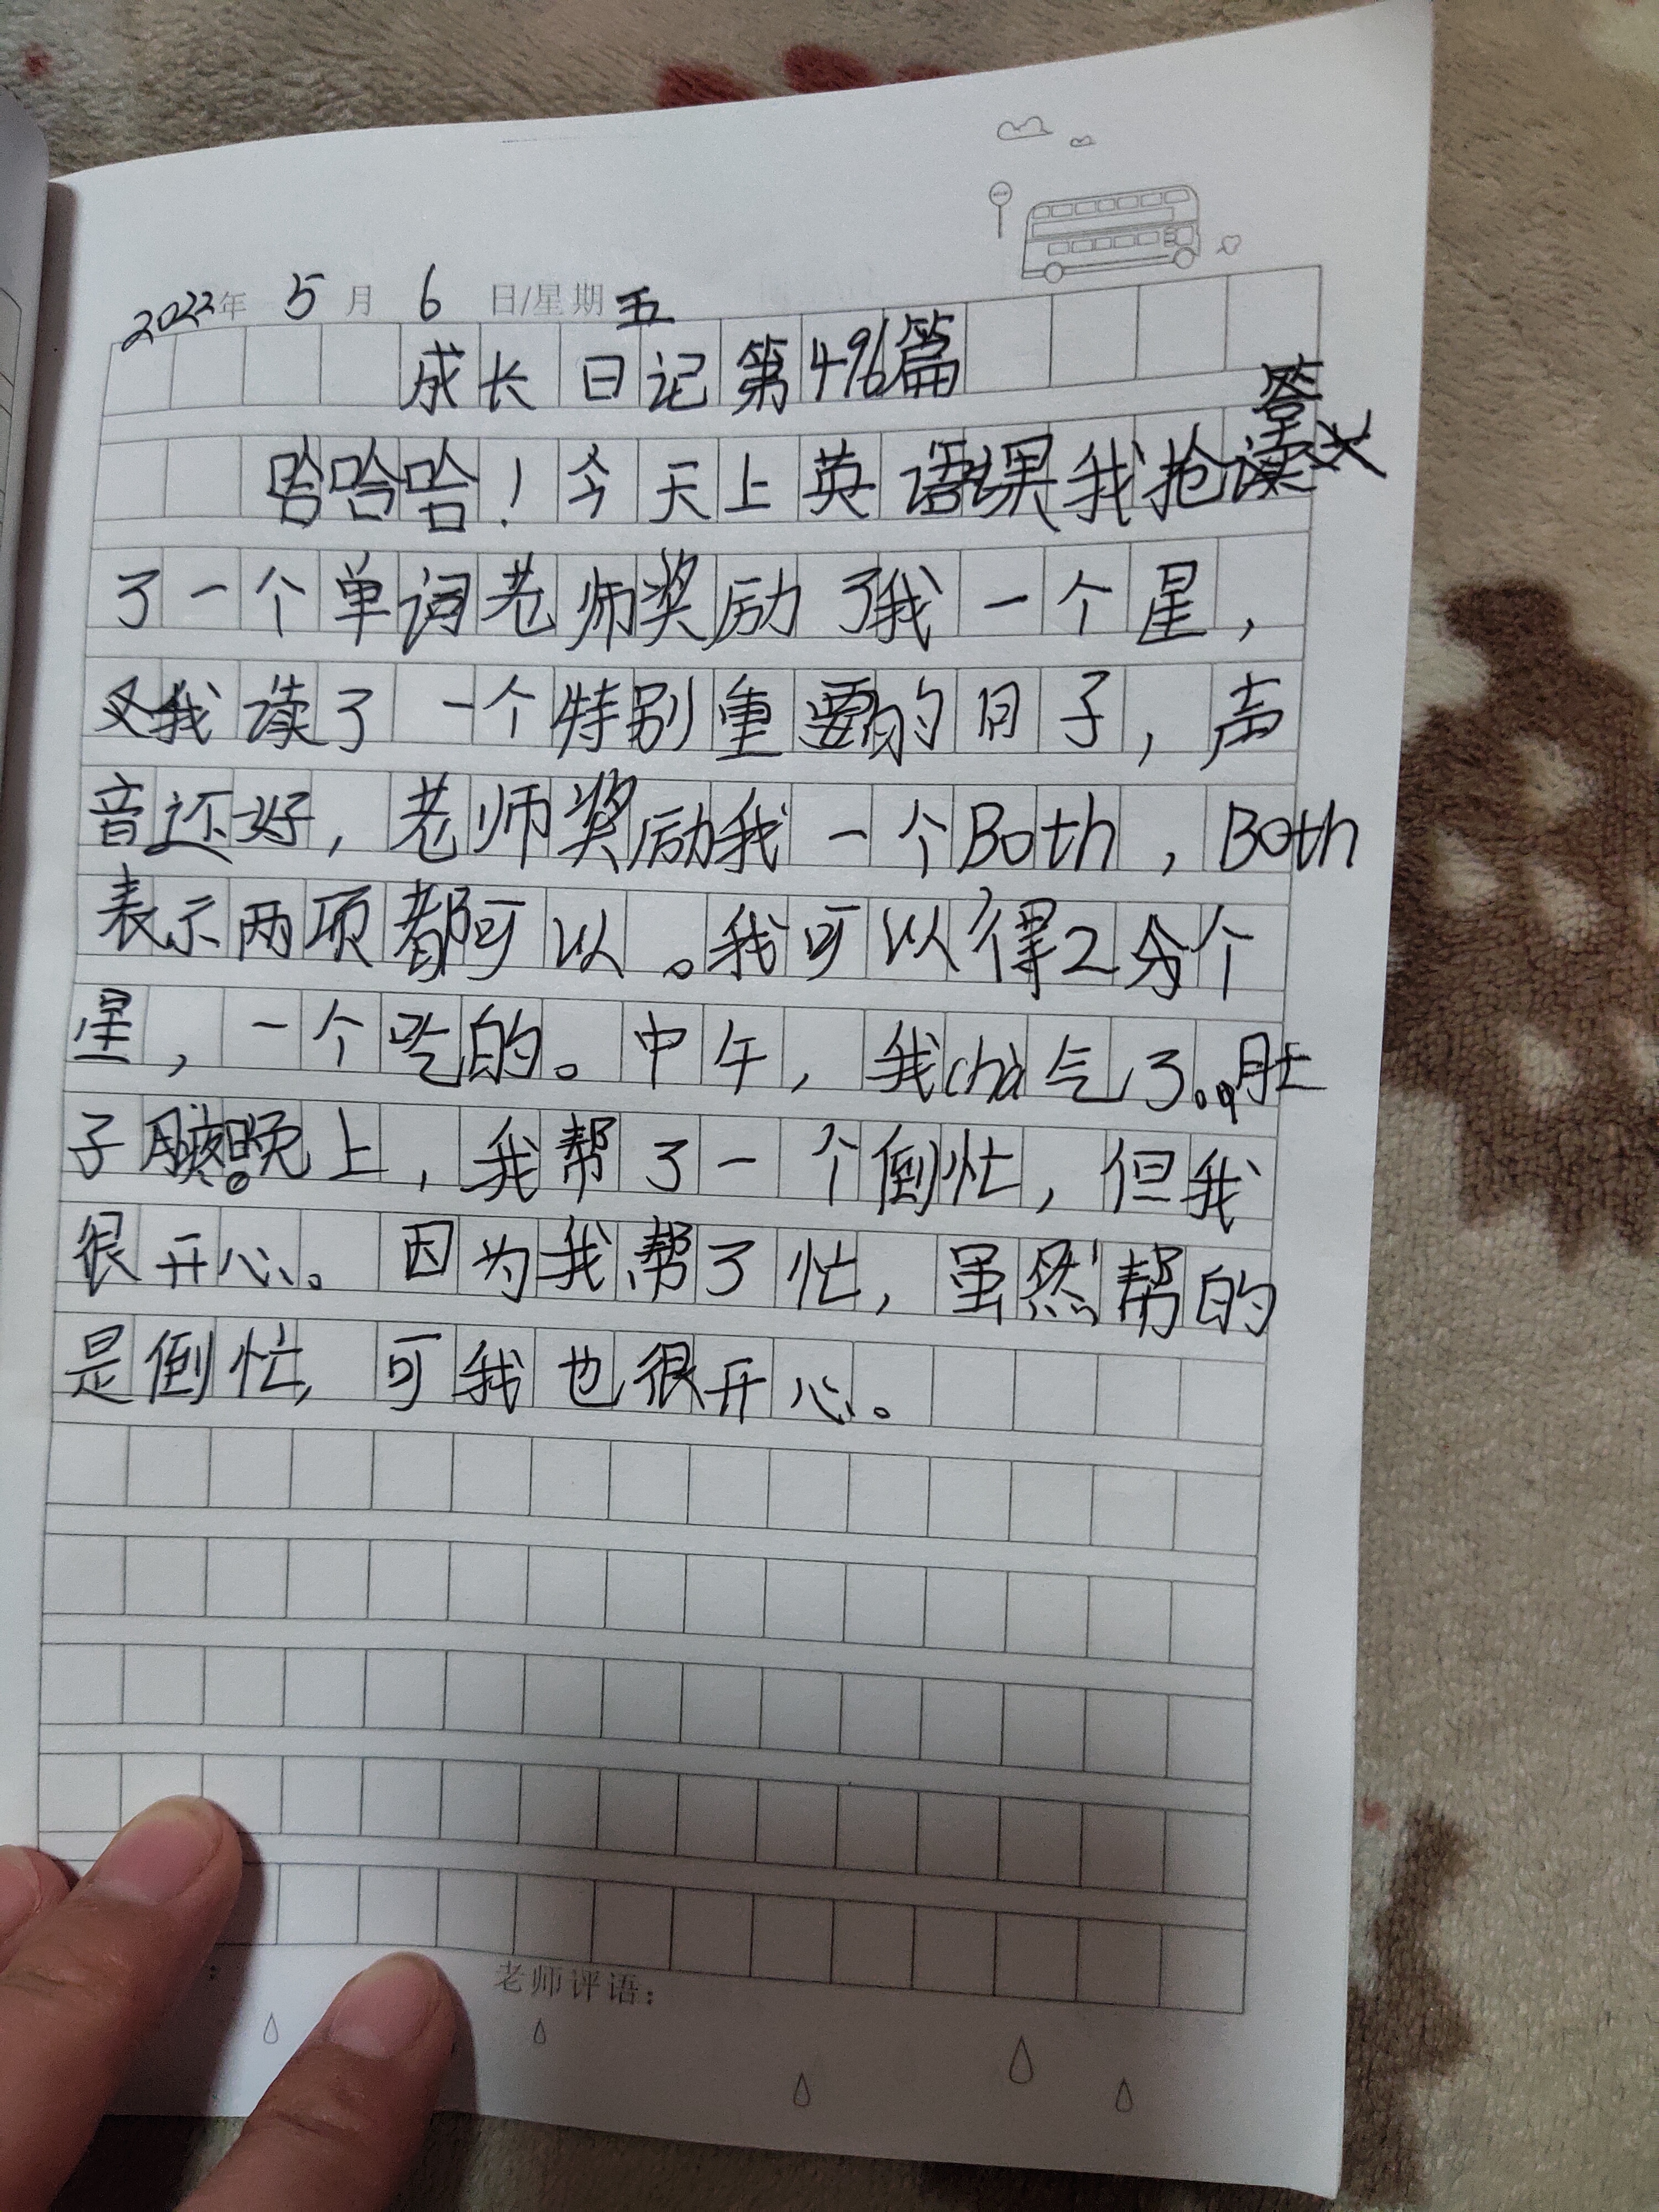 2022年 5月 6日/星期五
成长日记第496篇
哈哈哈!今天上英语课我抢答
了一个单词老师奖励了我一个星,
又我读了一个特别重要的日子,声
音还好,老师奖励我一个Both,Both
表示两项都可以。我可以得2分个
星,一个吃的。中午,我chà气了。肚
子疼。晚上,我帮了一个倒忙,但我
很开心。因为我帮了忙,虽然帮的
是倒忙,可我也很开心。
老师评语: